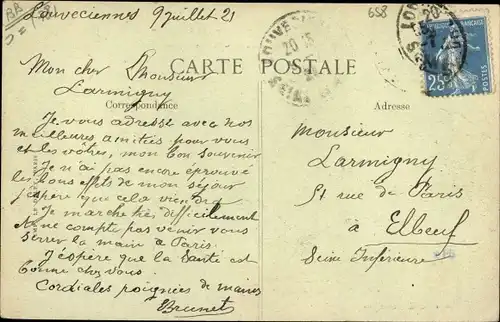 Louveciennes 9 juillet 21
658
CARTE POSTALE
Correspondance
Adresse
25
POSTES
Mon cher Monsieur
Larmigny
Je vous adresse avec nos
meilleures amitiés pour vous
et les vôtres, mon bon souvenir
Je n'ai pas encore éprouvé
les bons effets de mon séjour
j'espère que cela viendra
Je marche très difficilement
et ne compte pas venir vous
serrer la main à Paris.
J'espère que la Santé est
bonne chez vous.
Cordiales poignées de mains
Brunet
Monsieur
Larmigny
St rue de Paris
à Elbeuf
Seine Inférieure